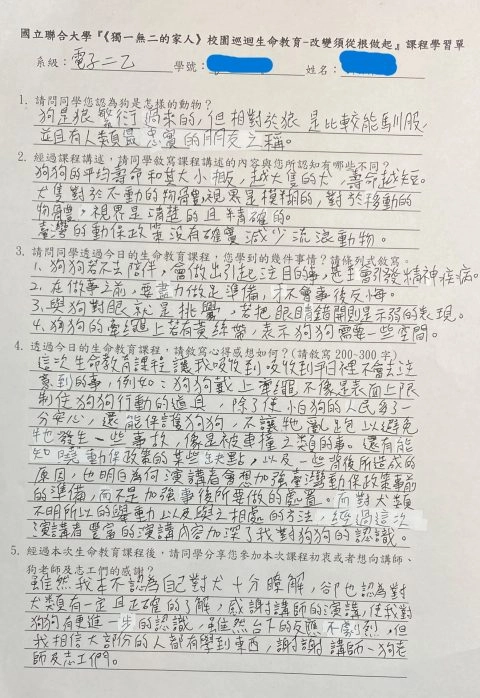 國立聯合大學『《獨一無二的家人》校園巡迴生命教育-改變須從根做起』課程學習單
系級：電子二乙 學號： 姓名：
1. 請問同學您認為狗是怎樣的動物？
狗是狼繁衍過來的，但相對於狼是比較能馴服，
並且有人類最忠實的朋友之稱。
2. 經過課程講述，請同學敘寫課程講述的內容與您所認知有哪些不同？
狗狗的平均壽命和其大小相反，越大隻的犬，壽命越短。
犬隻對於不動的物體視界是模糊的，對於移動的
物體，視界是清楚的且精確的。
臺灣的動保政策沒有確實減少流浪動物。
3. 請問同學透過今日的生命教育課程，您學到的幾件事情？請條列式敘寫。
1、狗狗若不去陪伴，會做出引起注目的事，甚至會引發精神疾病。
2、在做事之前，要盡力做足準備，才不會事後反悔。
3、與狗對眼就是挑釁，若把眼睛錯開則是示弱的表現。
4、狗狗的牽繩上若有黃絲帶，表示狗狗需要一些空間。
4. 透過今日的生命教育課程，請敘寫心得感想如何？(請敘寫 200-300 字)
這次生命教育課程讓我吸收到吸收到平日裡不會去注
意到的事，例如：狗狗戴上牽繩不像是表面上限
制住狗狗行動的道具，除了使怕狗的人民多了一
分安心，還能保護狗狗，不讓牠亂跑以避免
牠發生一些事故，像是被車撞之類的事。還有能
知曉動保政策的某些缺點，以及一些背後所造成的
原因，也明白為何演講者會想加強臺灣動保政策事前
的準備，而不是加強事後所要做的處置。而對犬類
不明所以的舉動以及與之相處的方法，經過這次
演講者豐富的演講內容加深了我對狗狗的認識。
5. 經過本次生命教育課程後，請同學分享您參加本次課程初衷或者想向講師、
狗老師及志工們的感謝？
雖然我本不認為自己對犬十分瞭解，卻也認為對
犬類有一定且正確的了解，感謝講師的演講，使我對
狗狗有更進一步的認識，雖然台下的反應不劇烈，但
我相信大部份的人都有學到東西，謝謝講師、狗老
師及志工們。